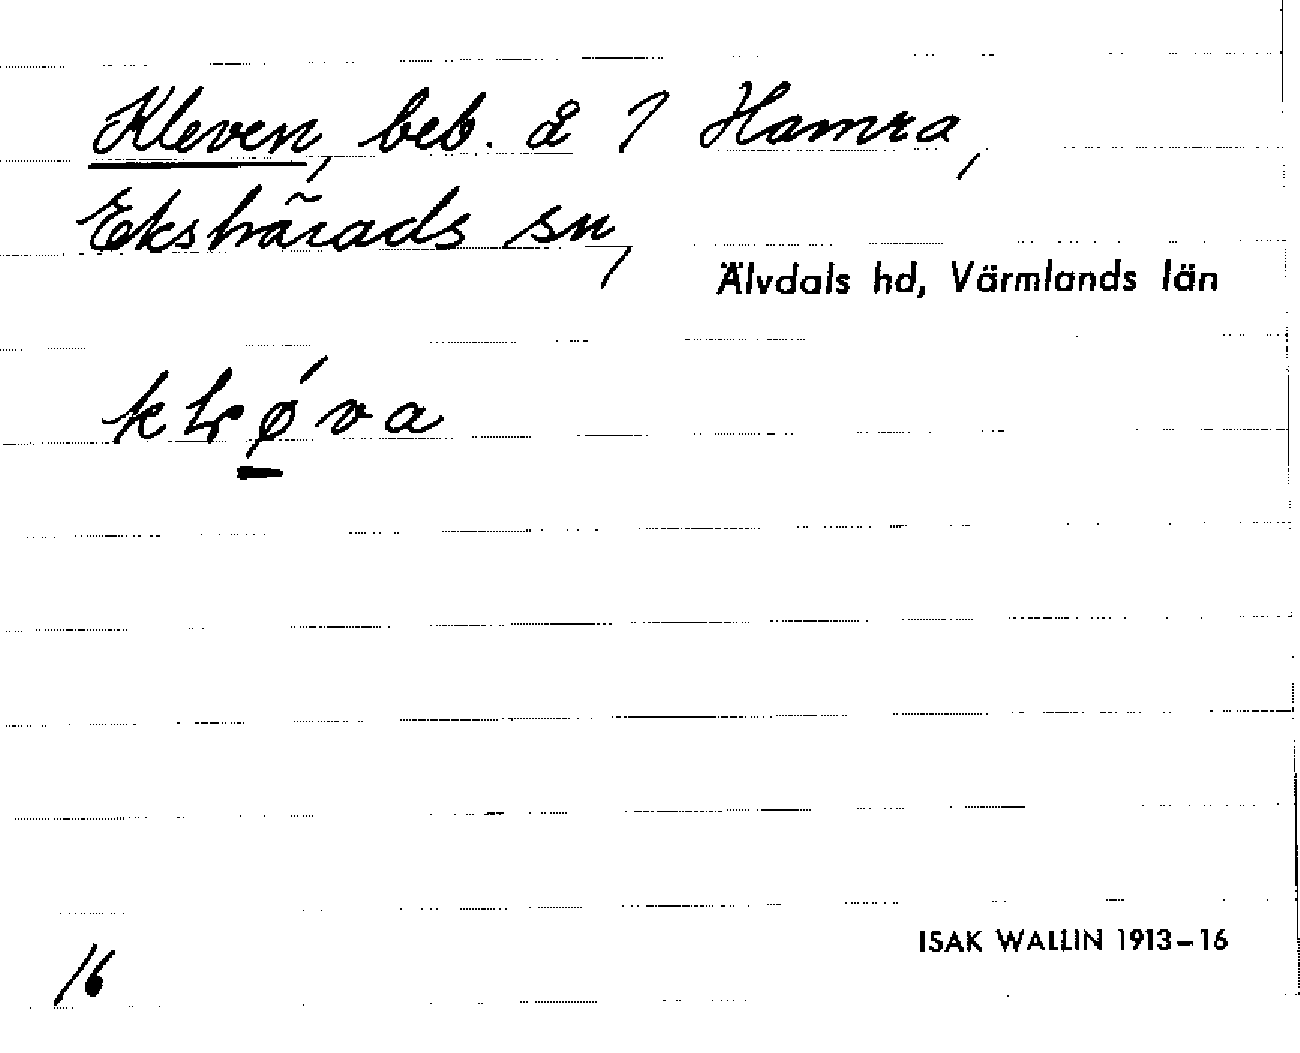 Kleven, beb. å 1 Hamra,
Ekshärads sn,
Älvdals hd, Värmlands län
16
ISAK WALLIN 1913–16